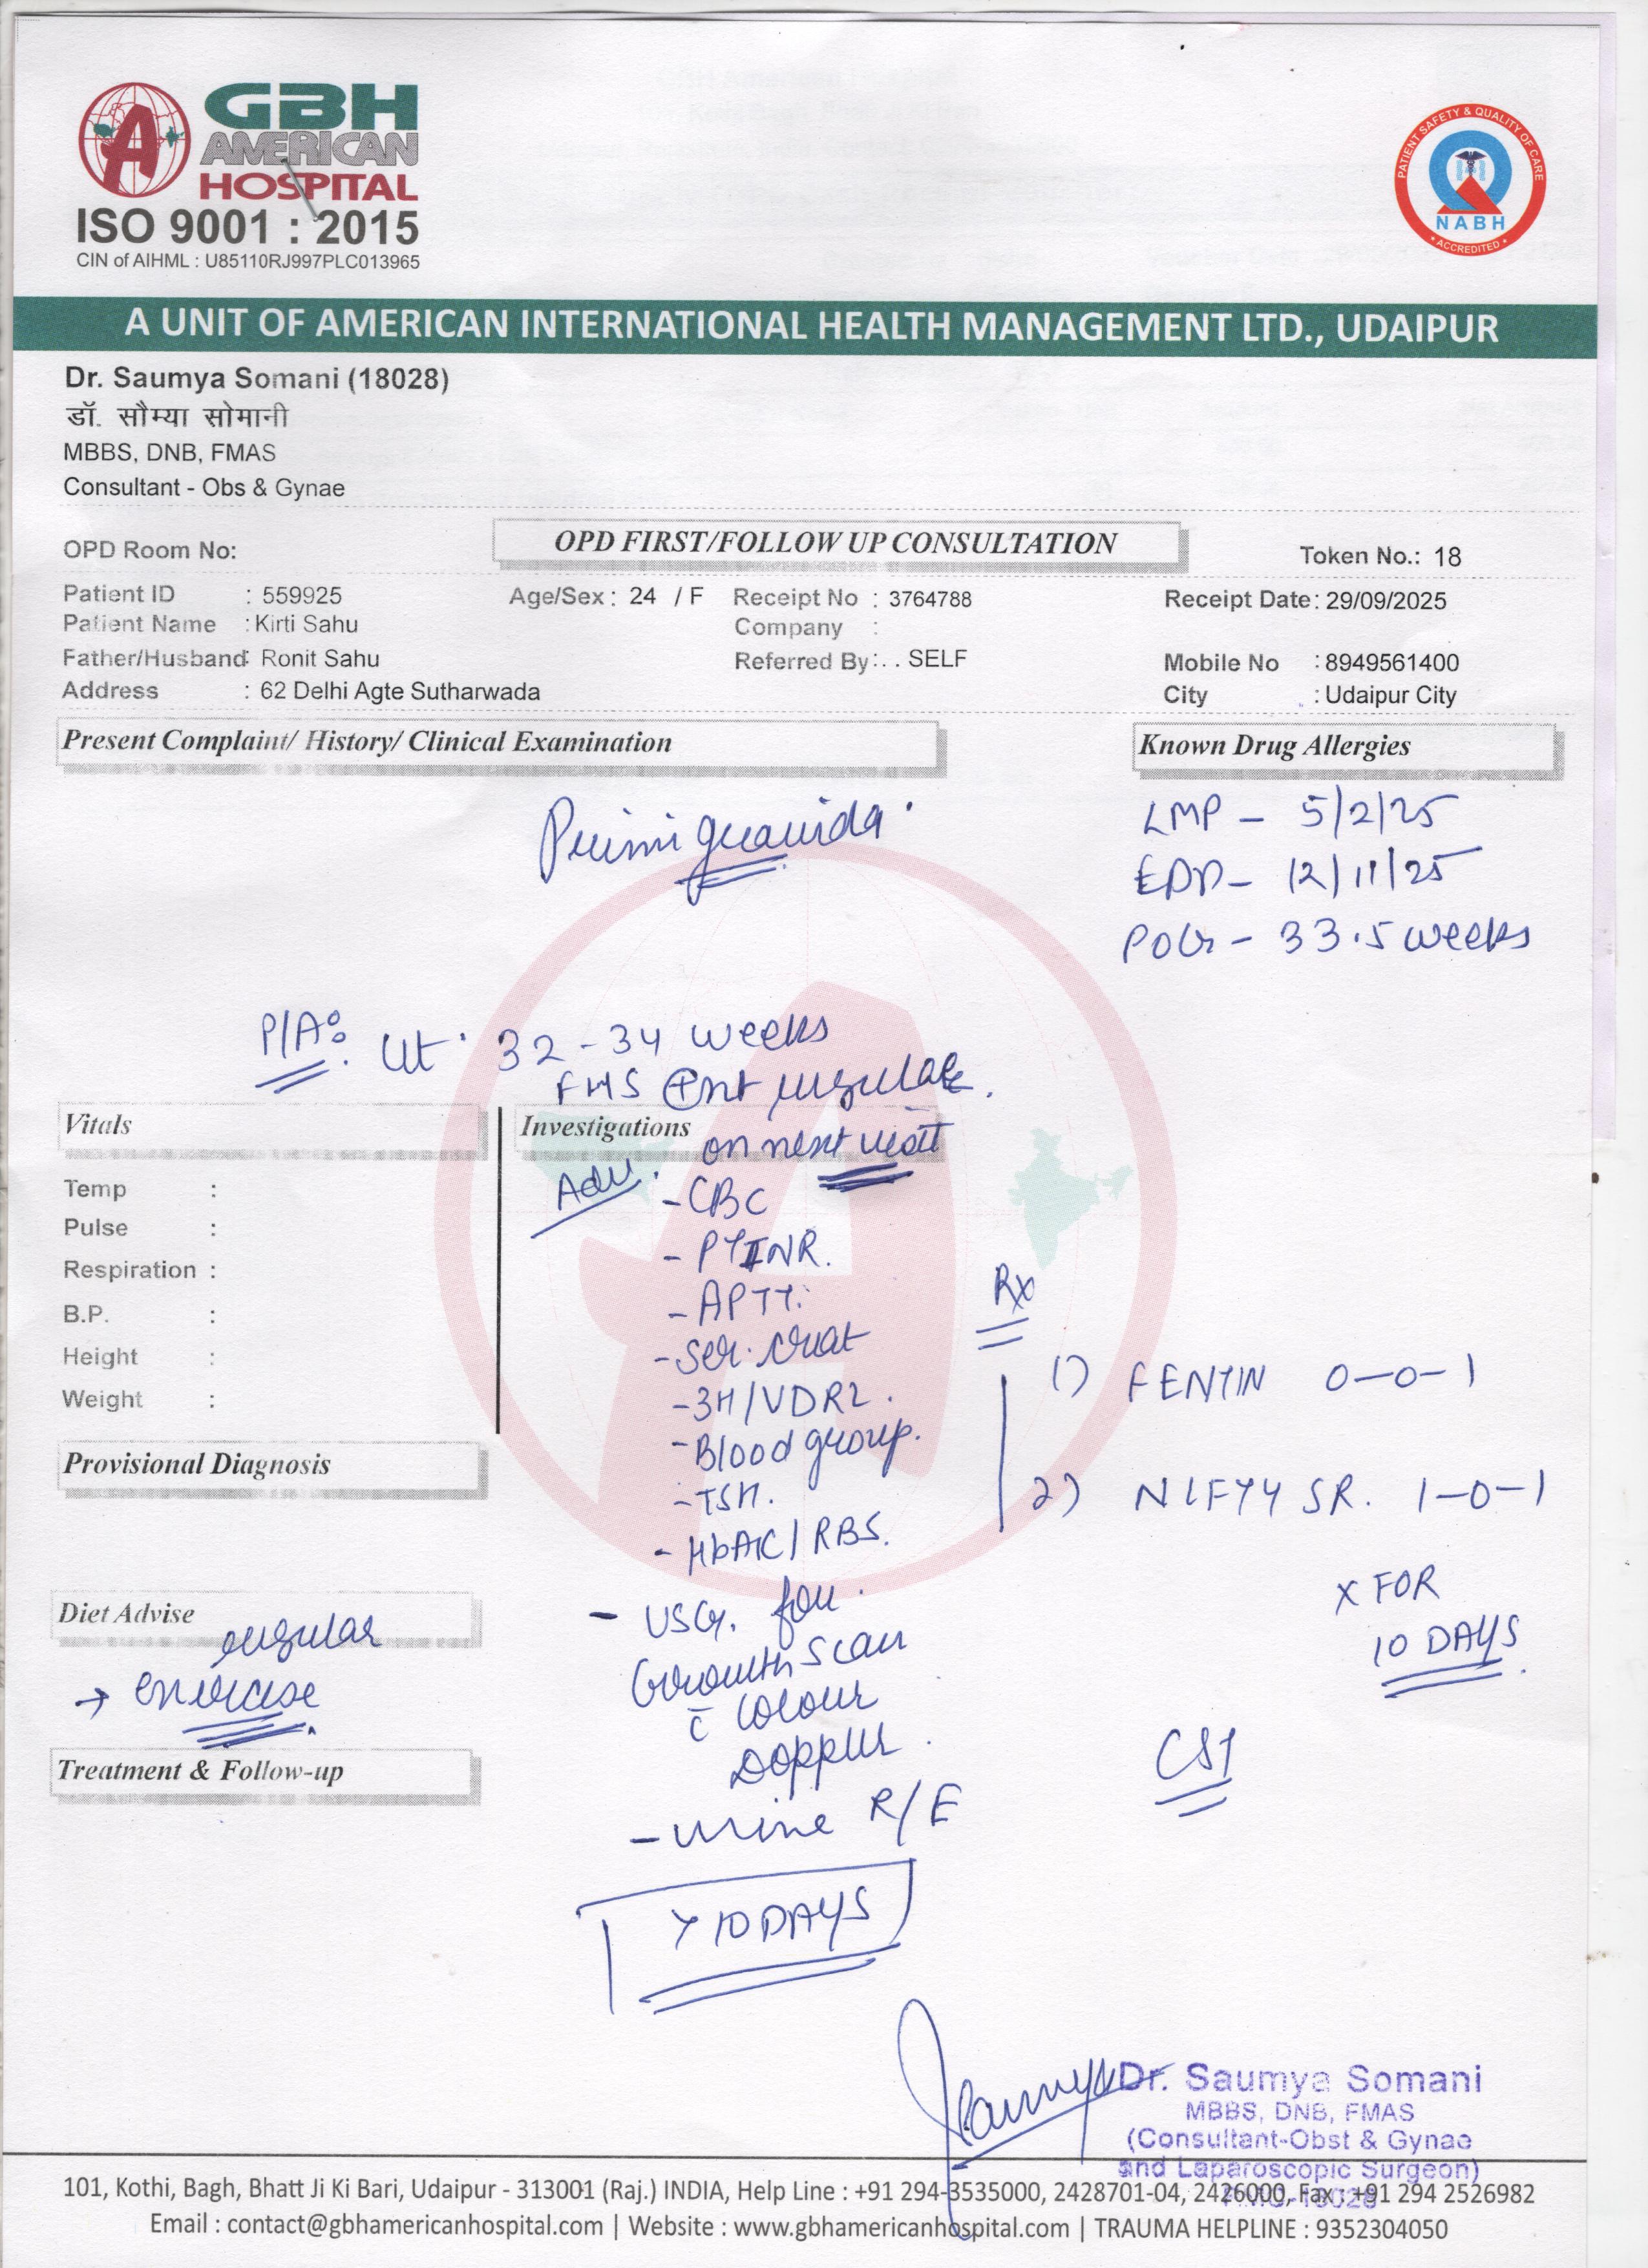 GBH
AMERICAN
HOSPITAL
ISO 9001 : 2015
CIN of AIHML : U85110RJ997PLC013965
PATIENT SAFETY & QUALITY OF CARE
NABH
ACCREDITED
A UNIT OF AMERICAN INTERNATIONAL HEALTH MANAGEMENT LTD., UDAIPUR
Dr. Saumya Somani (18028)
डॉ. सौम्या सोमानी
MBBS, DNB, FMAS
Consultant - Obs & Gynae
OPD Room No:
OPD FIRST/FOLLOW UP CONSULTATION
Token No.: 18
Patient ID : 559925 Age/Sex : 24 / F Receipt No : 3764788 Receipt Date : 29/09/2025
Patient Name : Kirti Sahu Company :
Father/Husband : Ronit Sahu Referred By : . . SELF Mobile No : 8949561400
Address : 62 Delhi Agte Sutharwada City : Udaipur City
Present Complaint/ History/ Clinical Examination
Known Drug Allergies
Primigravida.
LMP - 5/2/25
EDD - 12/11/25
POG - 33.5 weeks
P/A:
Ut. 32 - 34 weeks
FHS ⊕nt regular.
Vitals
Investigations
on next visit
Adv.
Temp :
Pulse :
Respiration :
B.P. :
Height :
Weight :
- CBC
- PTINR.
- APTT.
- Ser. creat
- 3H/VDRL.
- Blood group.
- TSH.
- HbA1C / RBS.
- USG. for
Growth Scan
c̄ Colour
Doppler.
- Urine R/E
> 10 DAYS
Rx
1) FENTIN 0-0-1
2) NIFTY SR. 1-0-1
x FOR
10 DAYS
Provisional Diagnosis
Diet Advise
regular
→ exercise
Treatment & Follow-up
Saumya
Dr. Saumya Somani
MBBS, DNB, FMAS
(Consultant-Obst & Gynae
and Laparoscopic Surgeon)
101, Kothi, Bagh, Bhatt Ji Ki Bari, Udaipur - 313001 (Raj.) INDIA, Help Line : +91 294-3535000, 2428701-04, 2426000, Fax : +91 294 2526982
Email : contact@gbhamericanhospital.com | Website : www.gbhamericanhospital.com | TRAUMA HELPLINE : 9352304050